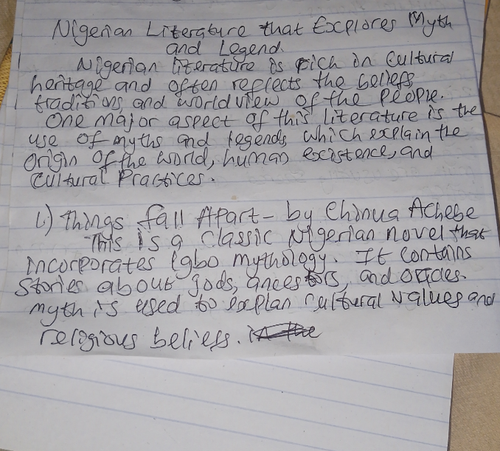 Nigerian Literature that Explores Myth
and Legend.
Nigerian literature is rich in cultural
heritage and often reflects the beliefs,
traditions, and world view of the people.
One major aspect of this literature is the
use of myths and legends which explain the
origin of the world, human existence, and
cultural practices.
1.) Things fall Apart - by Chinua Achebe
This is a classic Nigerian novel that
incorporates Igbo mythology. It contains
stories about gods, ancestors, and oracles.
myth is used to explan cultural values and
religious beliefs. in the